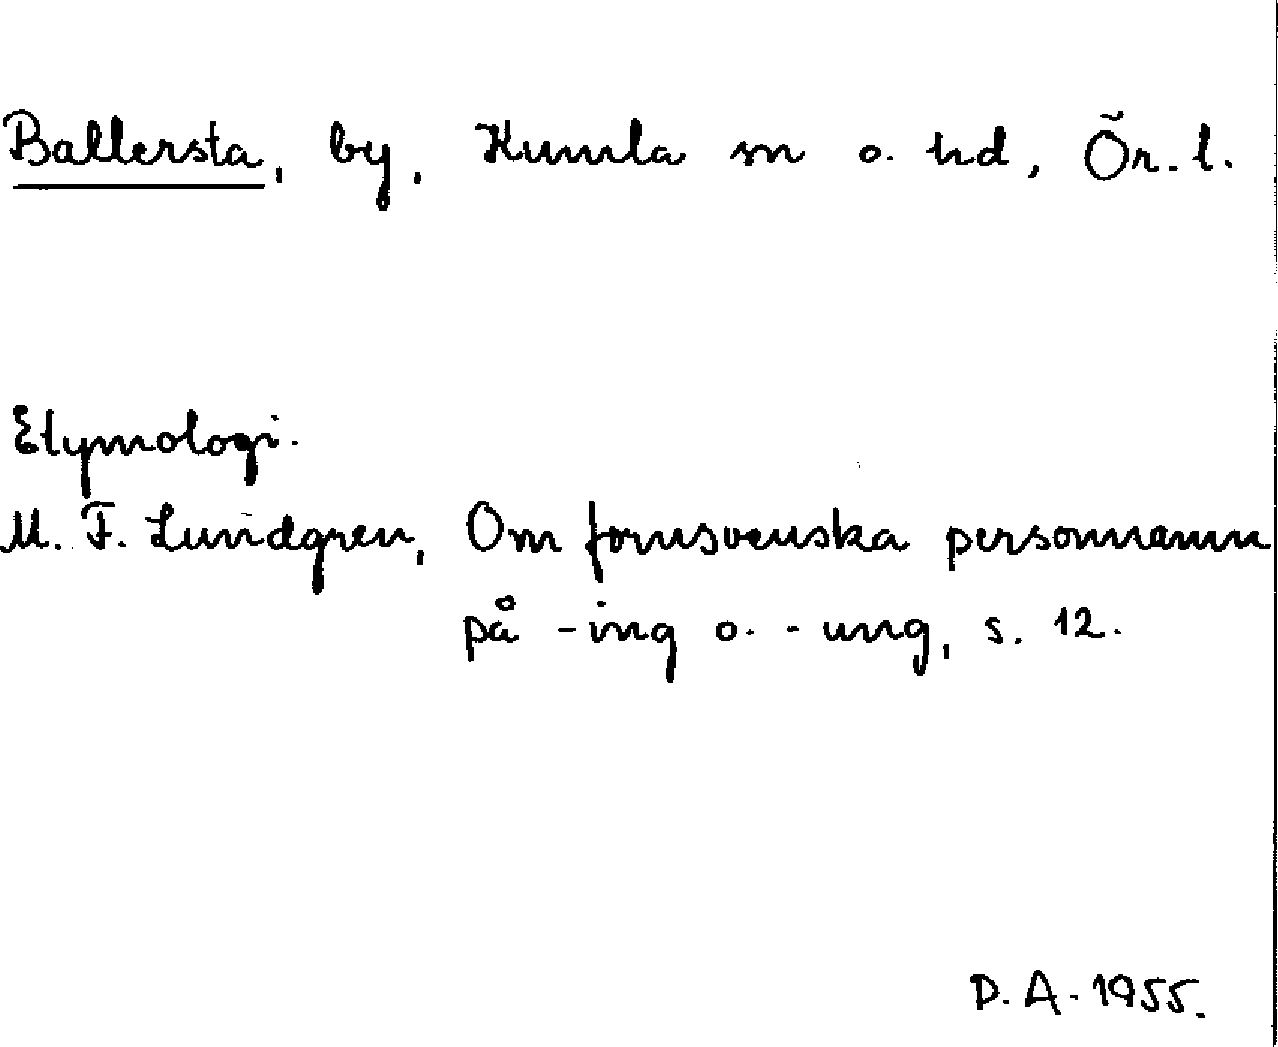 Ballersta, by, Kumla sn o. hd, Ör. l.
Etymologi.
M. F. Lundgren, Om fornsvenska personnamn
på -ing o. -ung, s. 12.
D. A. 1955.